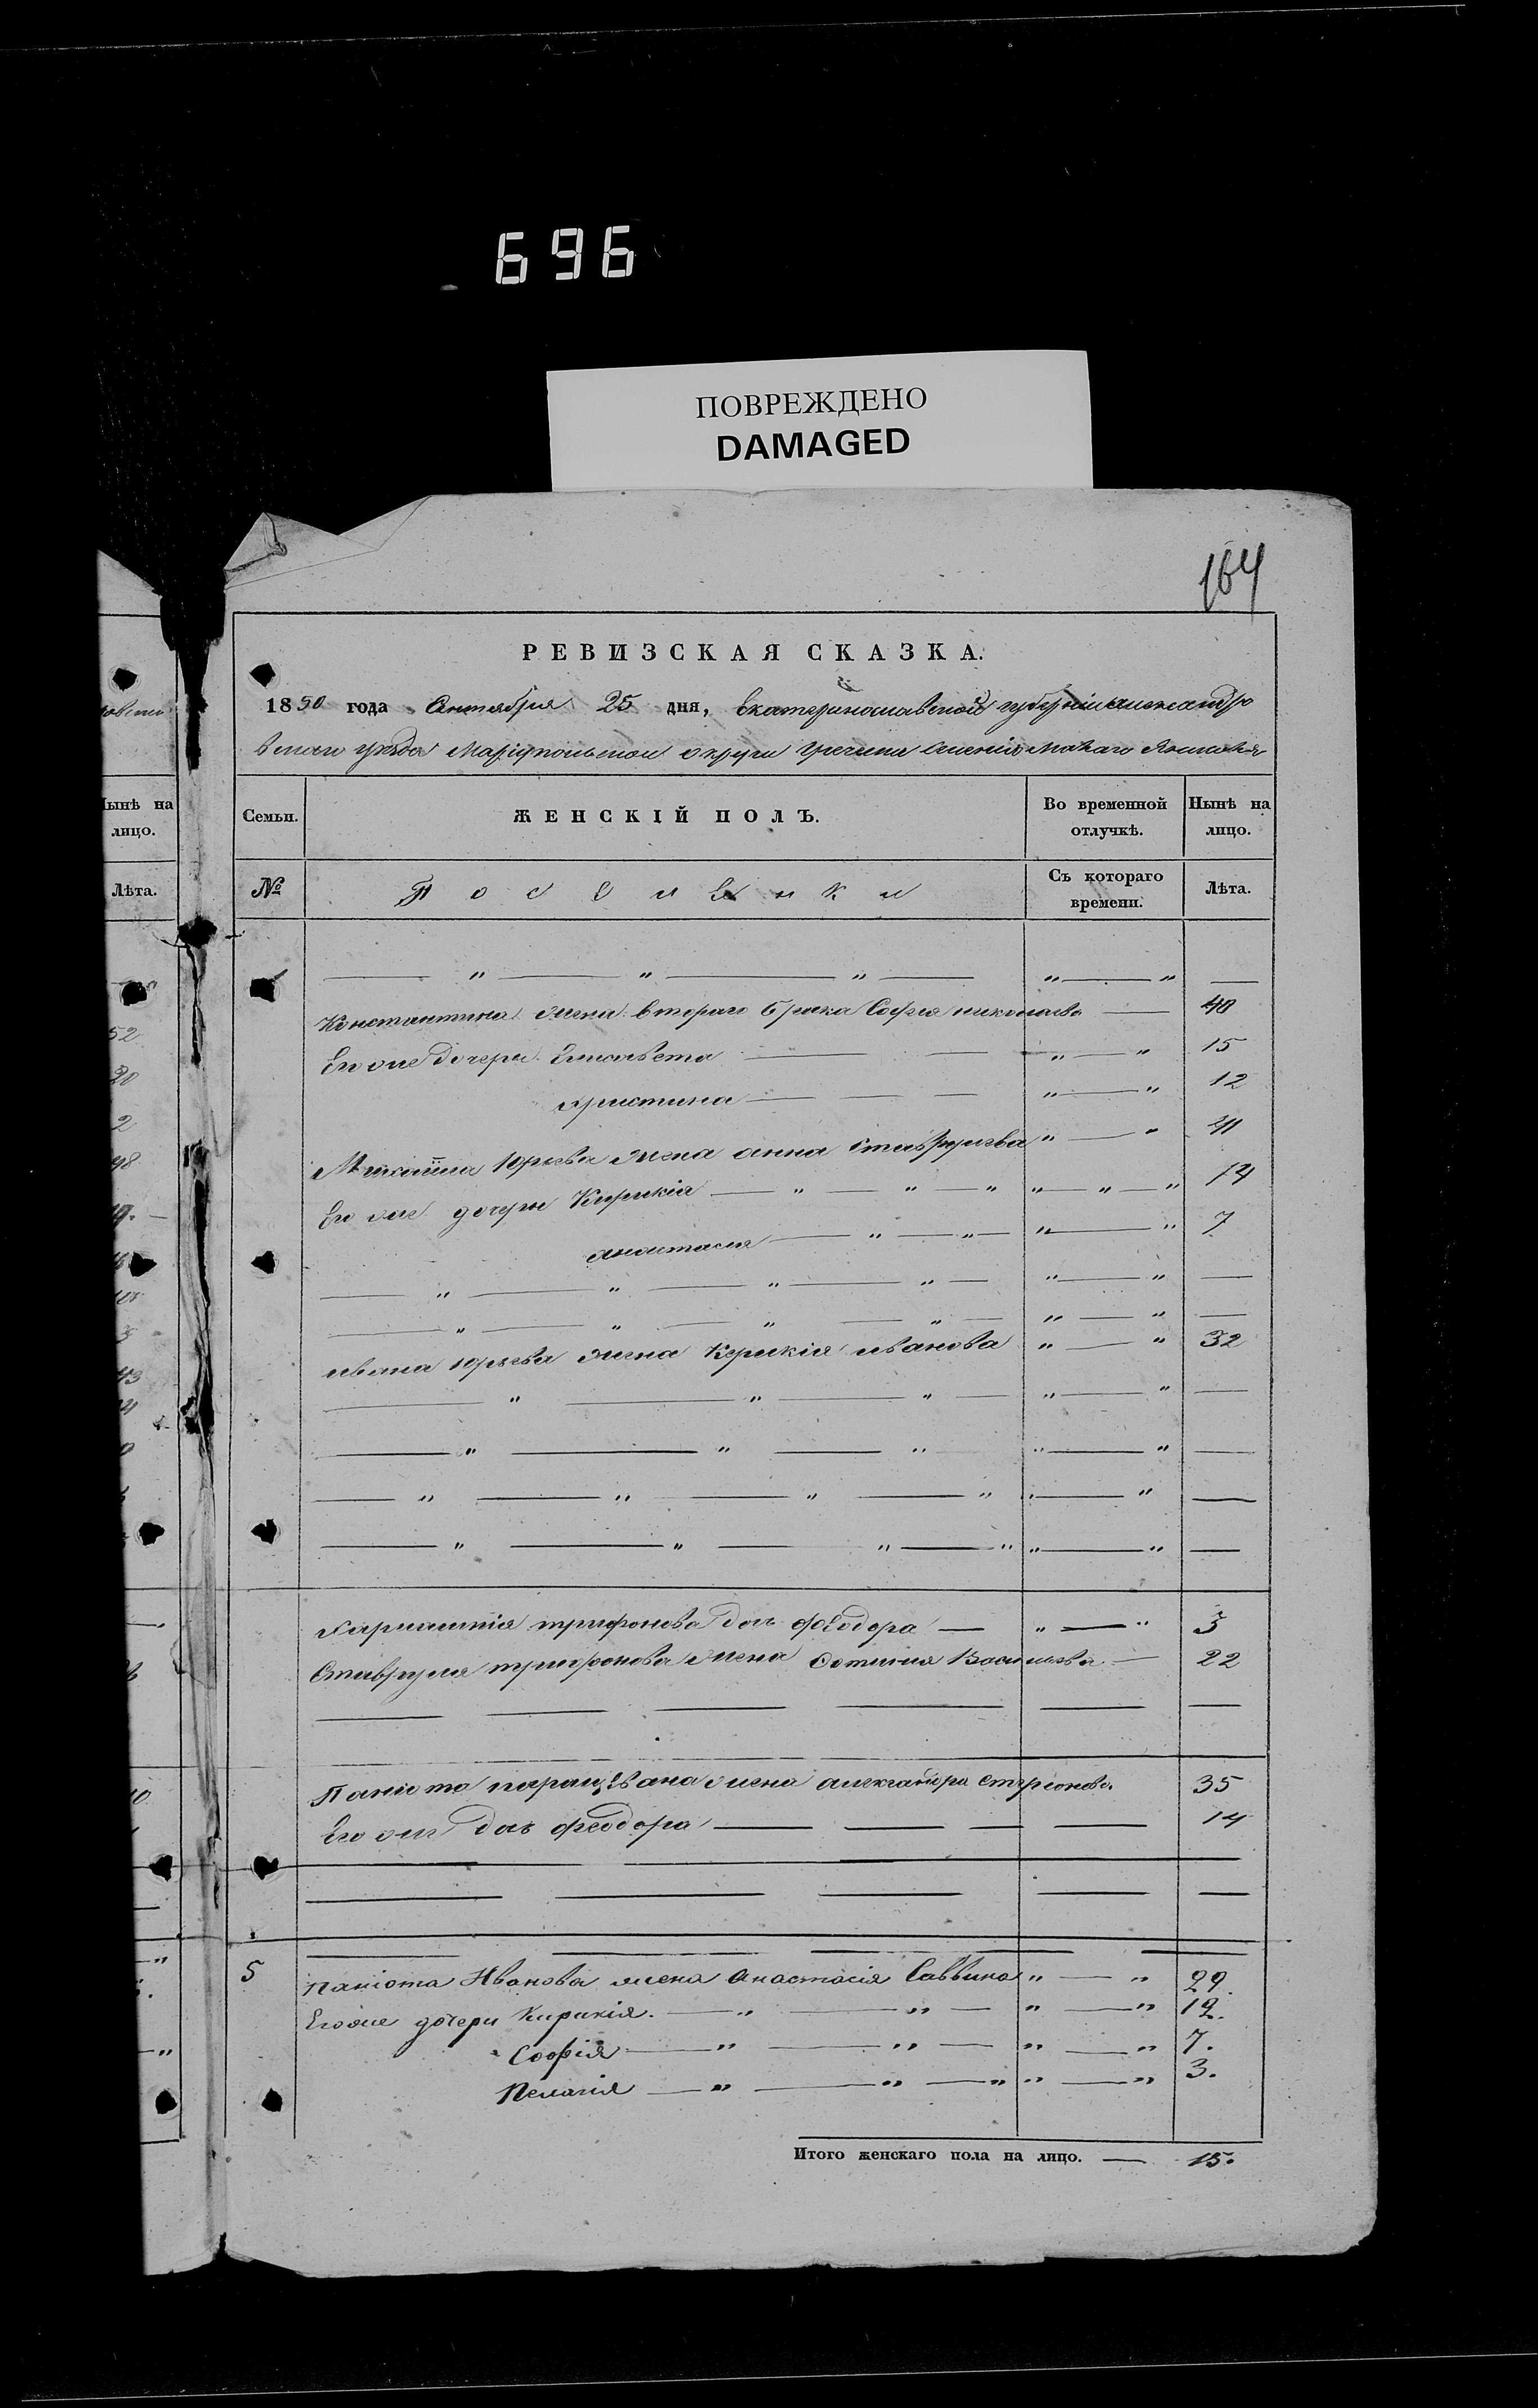 696
ПОВРЕЖДЕНО
DAMAGED
164
РЕВИЗСКАЯ СКАЗКА.
1850 года Октября 25 дня, Екатеринославской губерніи Александро
вскаго уѣзда Маріупольской округи греческаго селенія Малаго Янисоля
Нынѣ на
лицо.
Лѣта.
52
20
2
48
43
Семьи.
ЖЕНСКІЙ ПОЛЪ.
Во временной
отлучкѣ.
Нынѣ на
лицо.
№
Поселянки
Съ котораго
времени.
Лѣта.
Константина жена втораго брака Софія николаева — 40
Его же дочери Елисавета — „ — „ 15
христина — „ — „ 12
Михаила Юрьева жена анна ставруева „ — „ 41
Его же дочери Кирикія — „ — „ — „ „ — „ — „ 14
анастасия — „ — „ — „ — „ 7
ивана юрьева жена Керикія иванова „ — „ 32
харлампія трифонова дочь феодора — „ — „ 3
Ставруля трифонова жена Фотиния Васильева — 22
Паниота жена александра 35
Его же дочь феодора — 14
5
Паніота Иванова жена Анастасія Саввина „ — „ 29.
Его же дочери Кирикія. — „ — „ — „ — „ 12.
Софія — „ — „ — „ — „ 7.
Пелагія — „ — „ — „ „ — „ 3.
Итого женскаго пола на лицо. — 15.